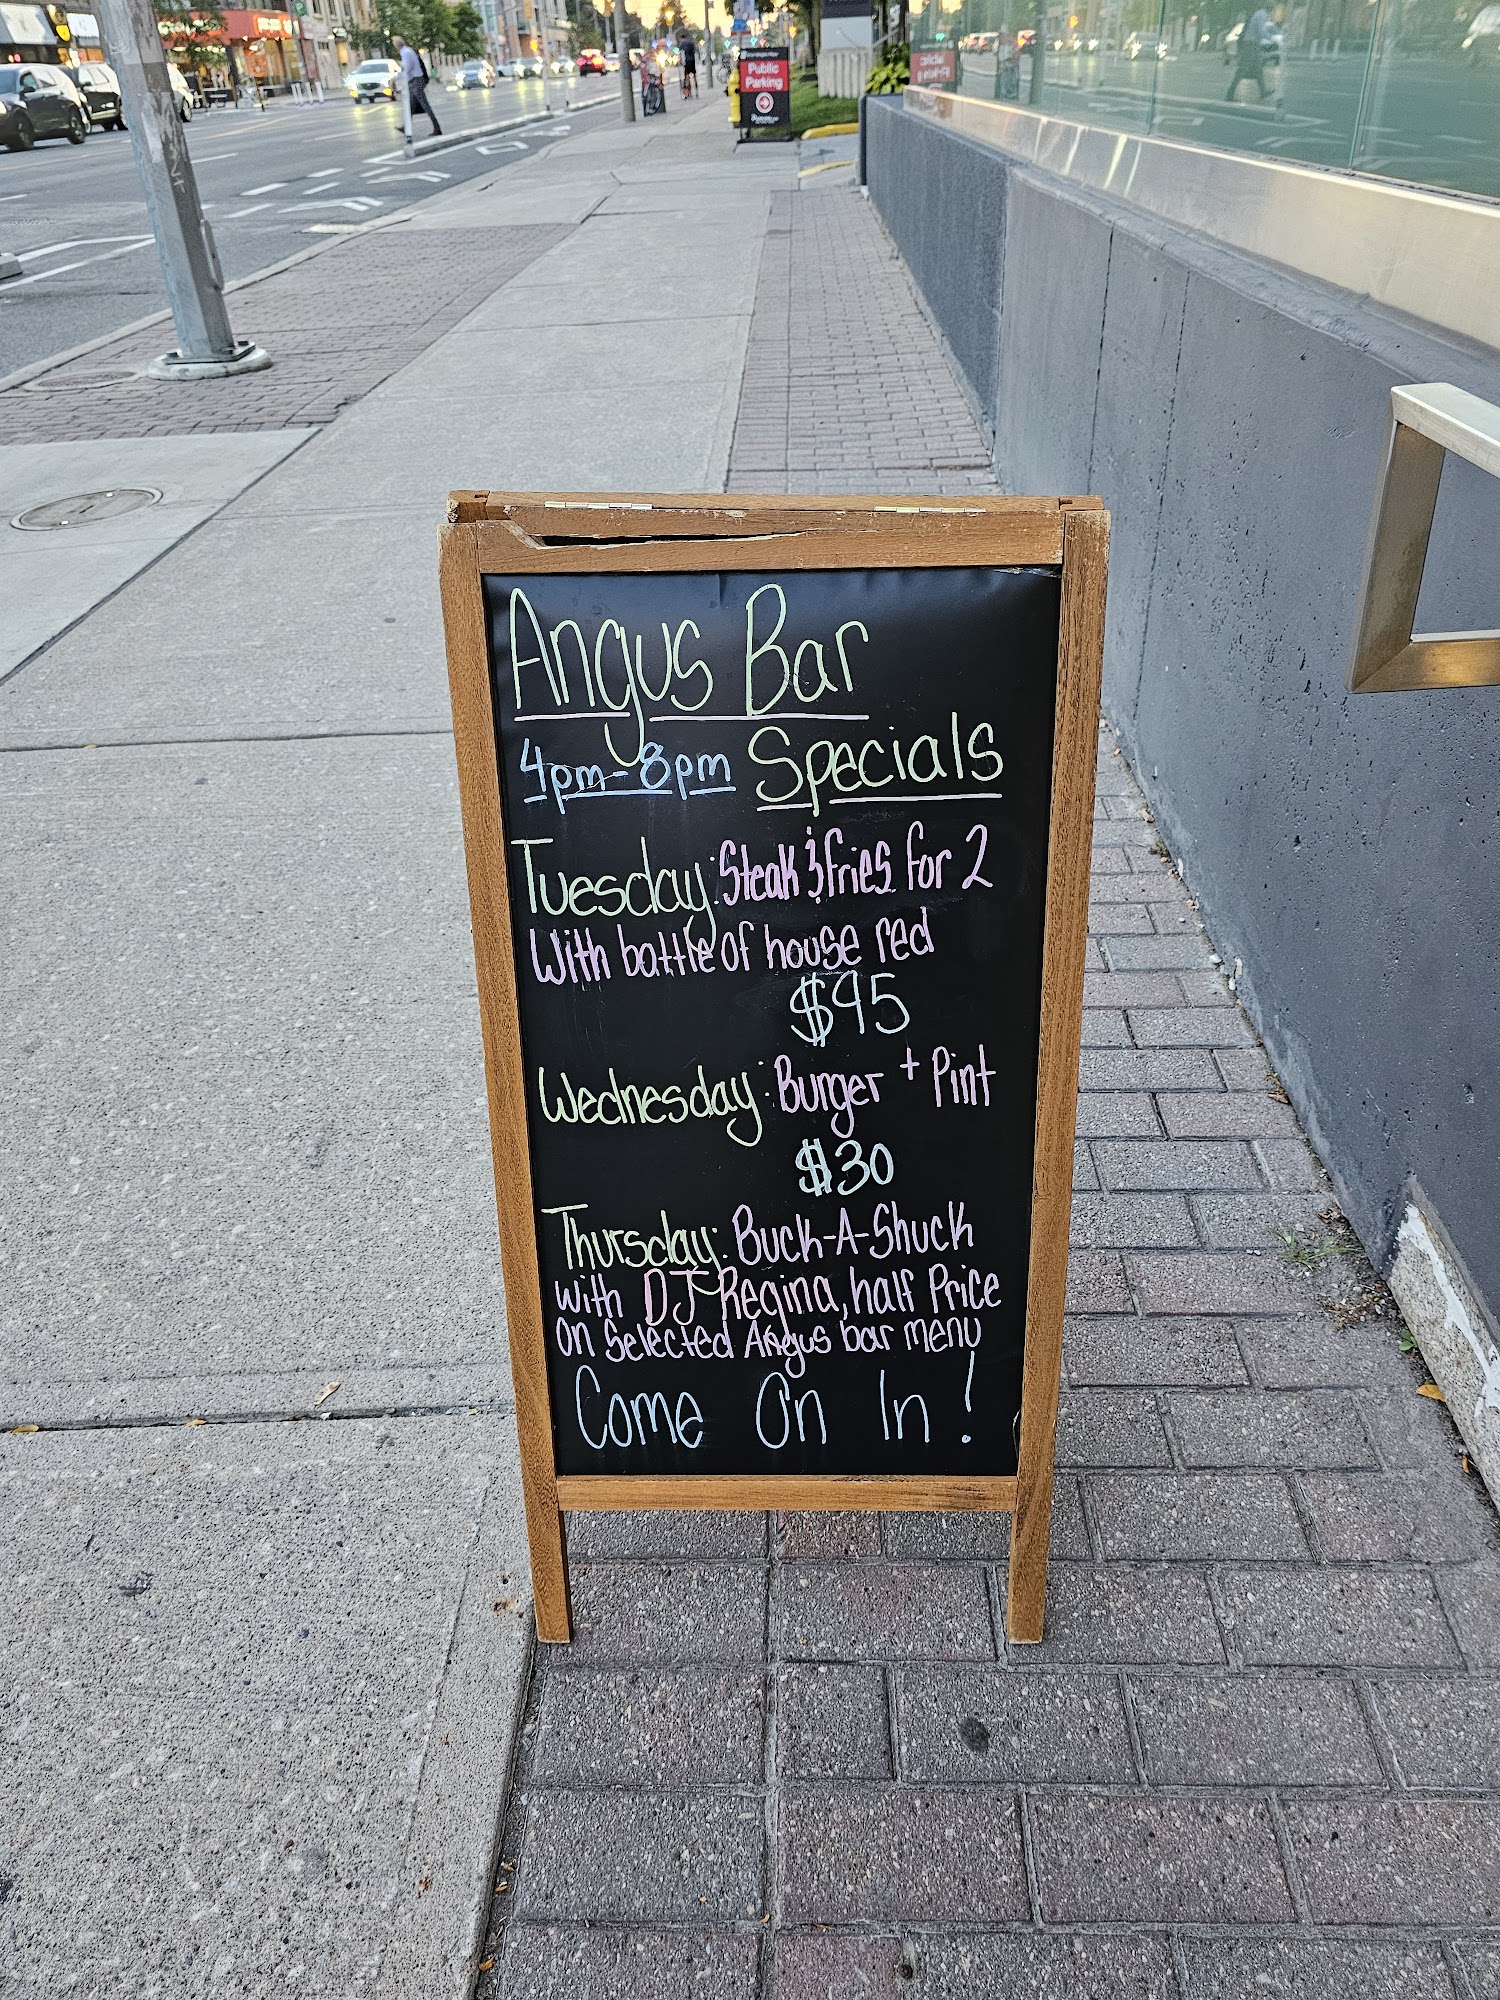 Public
Parking
Angus Bar
4pm-8pm Specials
Tuesday: Steak & fries for 2
With bottle of house red
$95
Wednesday: Burger + Pint
$30
Thursday: Buck-A-Shuck
with DJ Regina, half Price
on Selected Angus bar menu
Come On In!